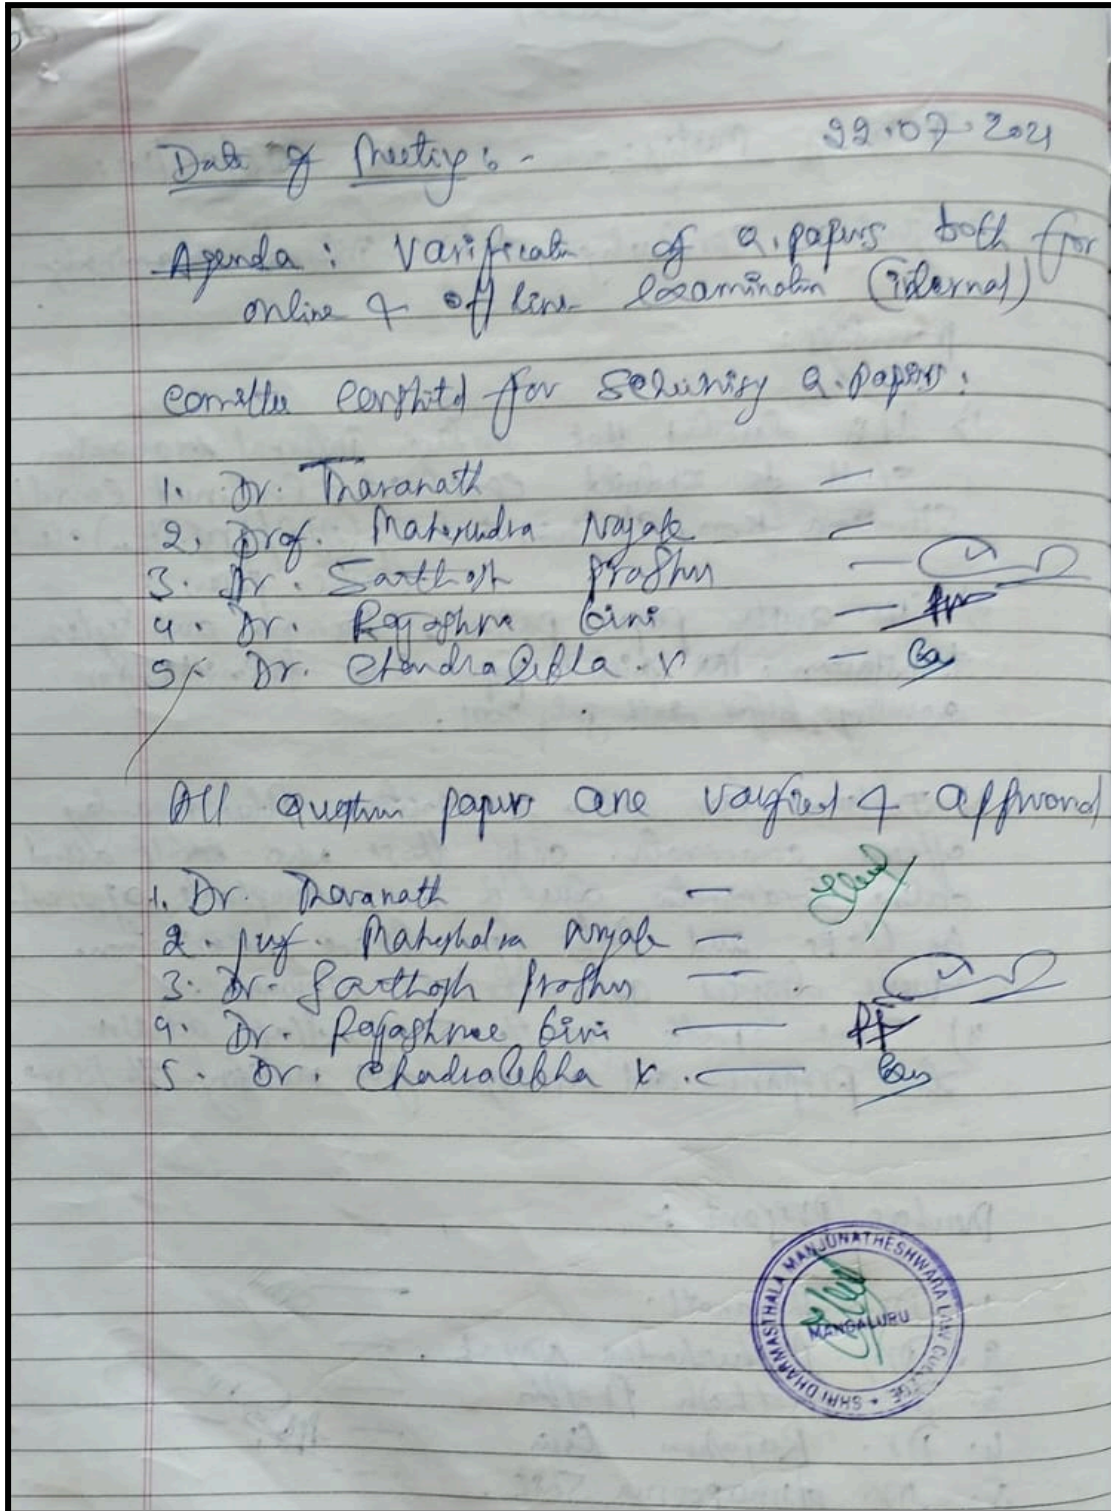 Date of Meeting :-
22.07.2021
Agenda : Varification of Q. papers both for
online & off line examination (internal)
for Q. papers :
1. Dr. Tharanath —
2. Prof. Mahesh Nayak —
3. Dr. Santhosh Prabhu —
4. Dr. —
5. Dr. Chandralekha . K —
All question papers are & approved
1. Dr. Tharanath —
2. Prof. Nayak —
3. Dr. Santhosh Prabhu —
4. Dr. Rajashree —
5. Dr. Chandralekha K . —
SHRI DHARMASTHALA MANJUNATHESHWARA LAW COLLEGE *
MANGALURU